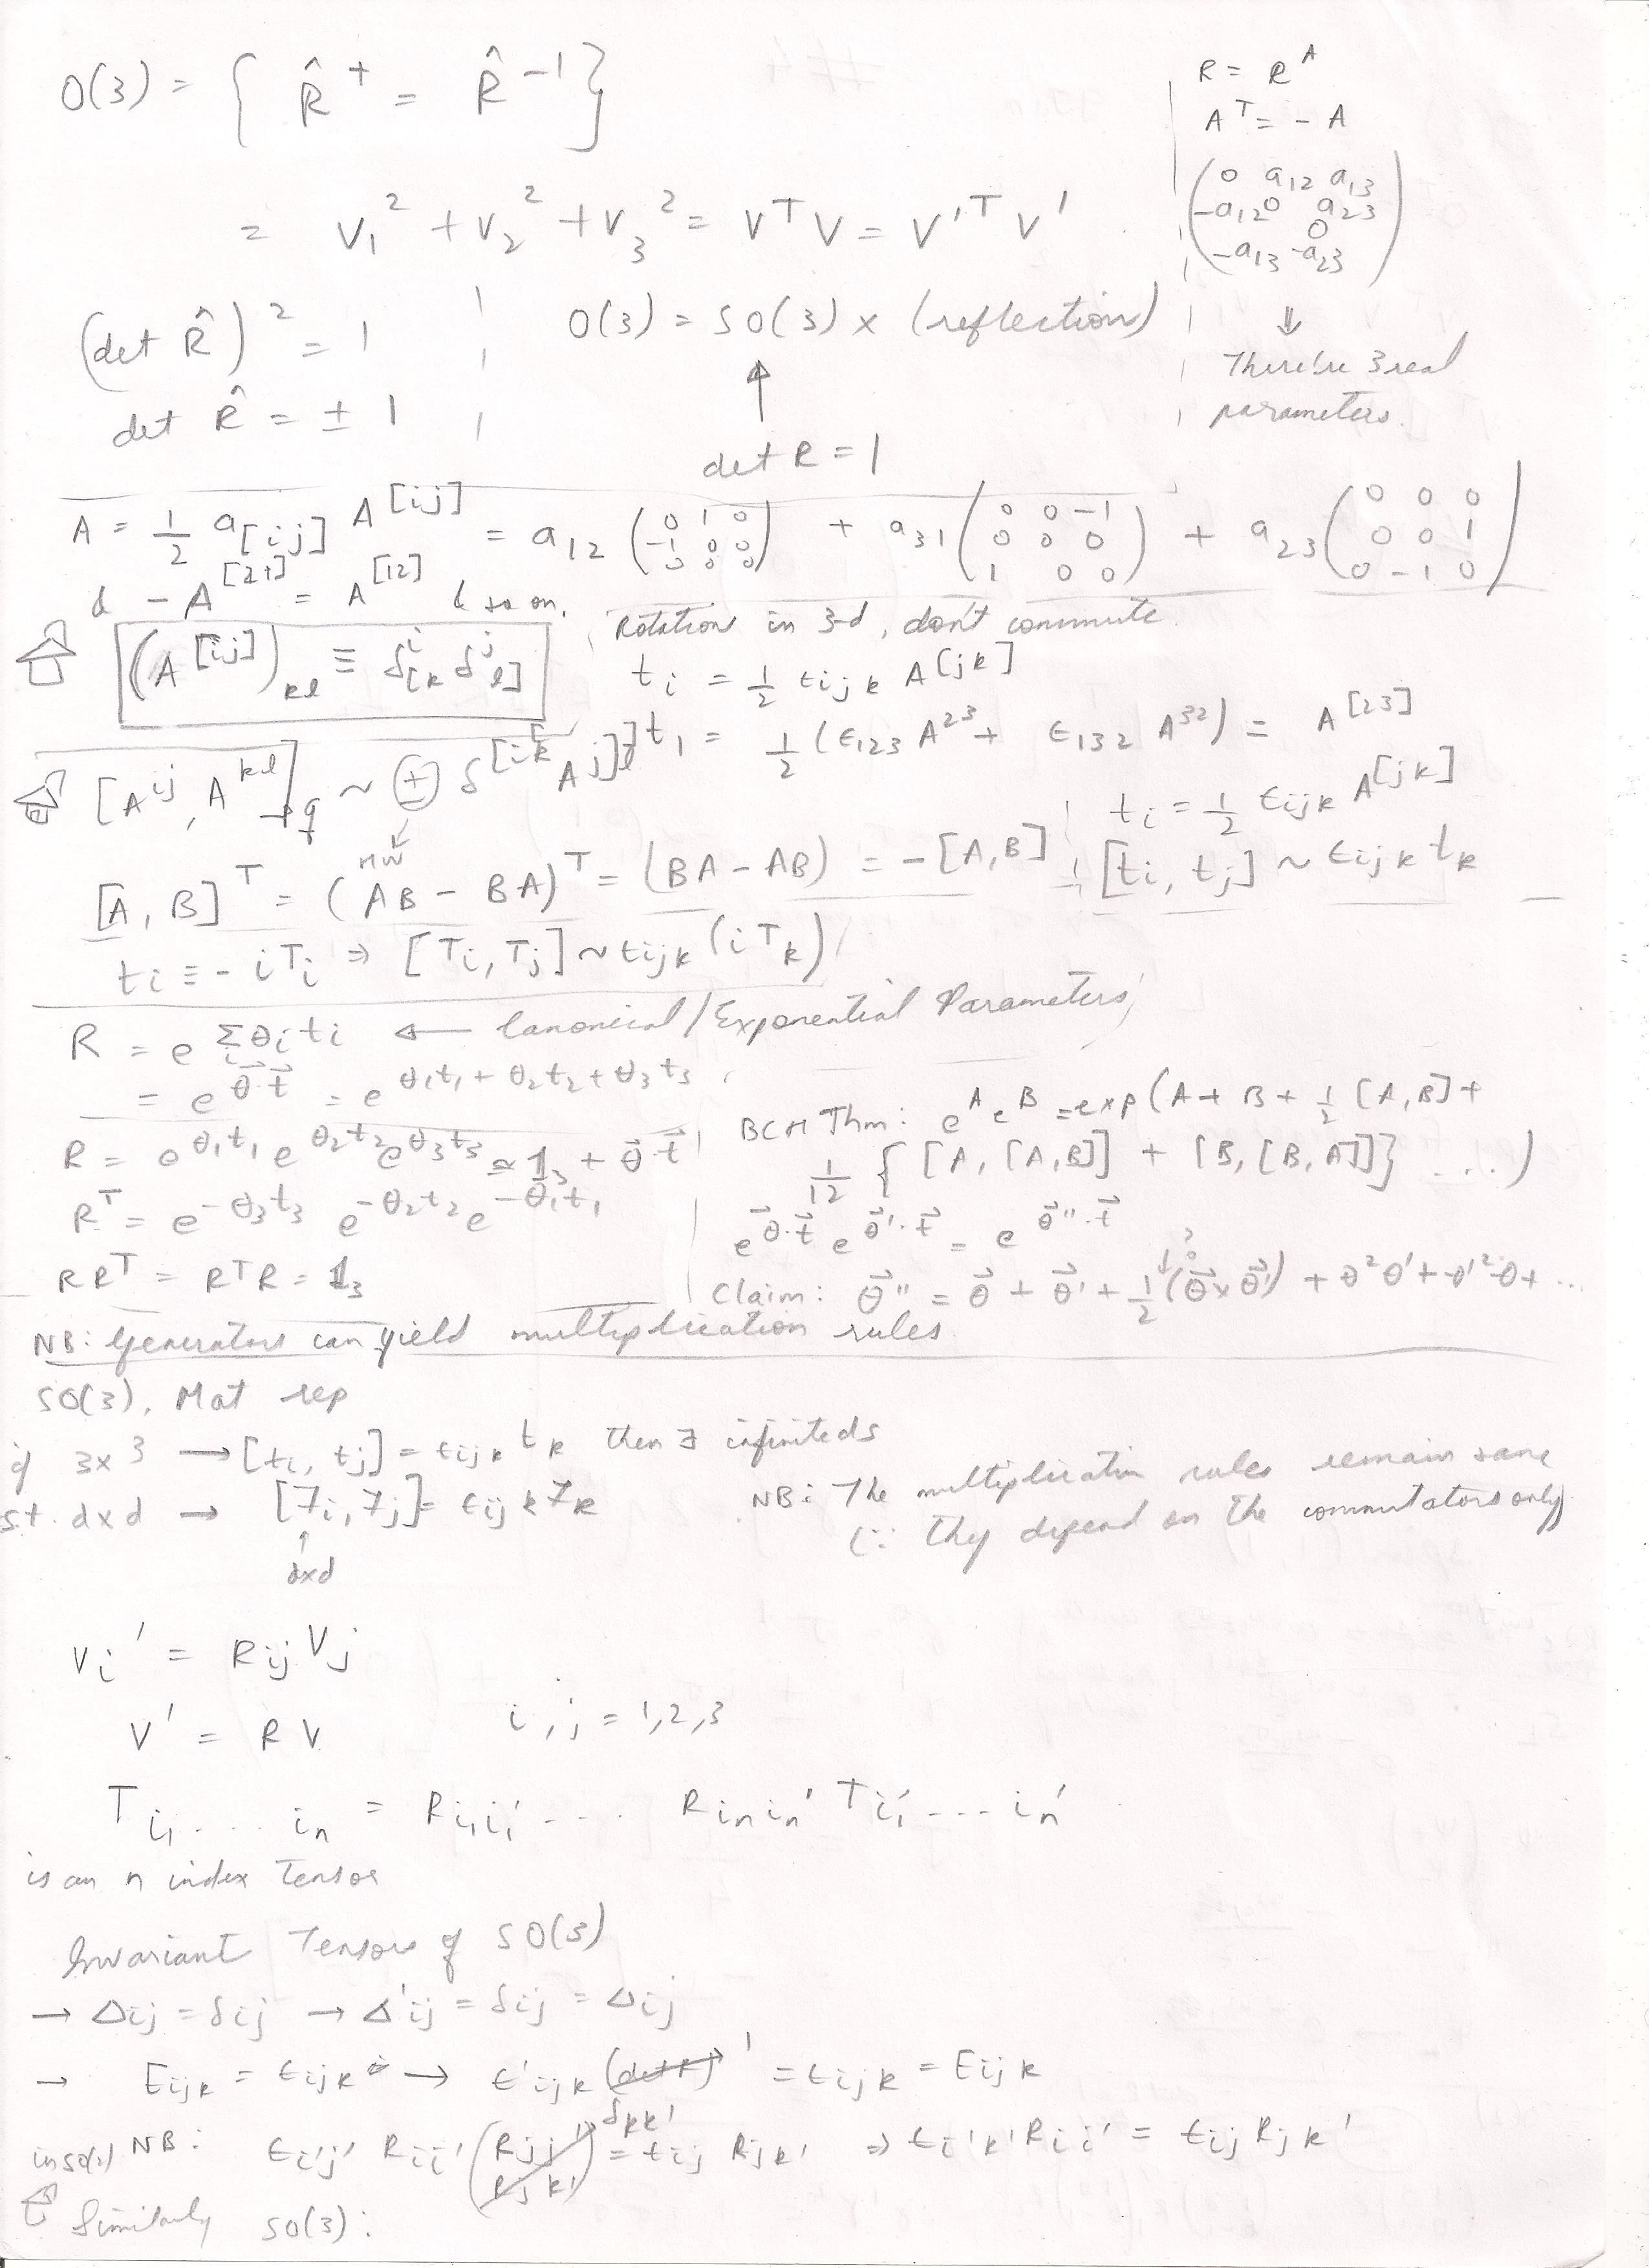 O(3) = { R̂⁺ = R̂⁻¹ }
= V₁² + V₂² + V₃² = VᵀV = V'ᵀV'
R = Rᴬ
Aᵀ = - A
( 0 a₁₂ a₁₃
-a₁₂ 0 a₂₃
-a₁₃ -a₂₃ 0 )
⇓
There're 3 real
parameters.
(det R̂)² = 1
det R̂ = ± 1
O(3) = SO(3) × (reflection)
↑
det R = 1
A = 1/2 a[ij] A^[ij] = a₁₂ (0 1 0 / -1 0 0 / 0 0 0) + a₃₁ (0 0 -1 / 0 0 0 / 1 0 0) + a₂₃ (0 0 0 / 0 0 1 / 0 -1 0)
& - A^[21] = A^[12] & so on.
(A^[ij])_kl ≡ δ^i_[k δ^j_l]
Rotation in 3-d, don't commute.
t_i = 1/2 ϵ_ijk A^[jk]
t₁ = 1/2 (ϵ₁₂₃ A²³ + ϵ₁₃₂ A³²) = A^[23]
[A^ij, A^kl]_pq ~ ± δ^[i[k A^j]l]
HW
t_i = 1/2 ϵ_ijk A^[jk]
[A, B]ᵀ = (AB - BA)ᵀ = (BA - AB) = -[A,B]
[t_i, t_j] ~ ϵ_ijk t_k
t_i ≡ - i T_i ⇒ [T_i, T_j] ~ ϵ_ijk (i T_k)
R = e^{Σ_i θ_i t_i} ← Canonical/Exponential Parameters
= e^{θ⃗·t⃗} = e^{θ₁t₁ + θ₂t₂ + θ₃t₃}
R = e^{θ₁t₁} e^{θ₂t₂} e^{θ₃t₃} ≃ 1₃ + θ⃗·t⃗
Rᵀ = e^{-θ₃t₃} e^{-θ₂t₂} e^{-θ₁t₁}
RRᵀ = RᵀR = 1₃
BCH Thm: e^A e^B = exp(A + B + 1/2 [A,B] +
1/12 { [A, [A,B]] + [B, [B, A]] } ...)
e^{θ⃗·t⃗} e^{θ⃗'·t⃗} = e^{θ⃗''·t⃗}
?
Claim: θ⃗'' = θ⃗ + θ⃗' + 1/2 (θ⃗×θ⃗') + θ²θ' + θ'²θ + ...
NB: Generators can yield multiplication rules.
SO(3), Mat rep
if 3x3 → [t_i, t_j] = ϵ_ijk t_k then ∃ infinite ds
st. dxd → [7_i, 7_j] = ϵ_ijk 7_k
↑
dxd
NB: The multiplication rules remain same
(∵ they depend on the commutators only)
V_i' = R_ij V_j
V' = R V
i, j = 1,2,3
T_i₁ ... i_n = R_i₁i₁' .... R_i_n i_n' T_i₁' .... i_n'
is an n index Tensor
Invariant Tensors of SO(3)
→ Δij = δij → Δ'ij = δij = Δij
→ Eijk = ϵijk → ϵ'ijk (det R) 1 = ϵijk = Eijk
in so(2) NB: ϵi'j' Rii' (Rjj' Rjk') δkk' = ϵij Rjk' ⇒ ϵi'k' Rii' = ϵij Rjk'
Similarly SO(3):